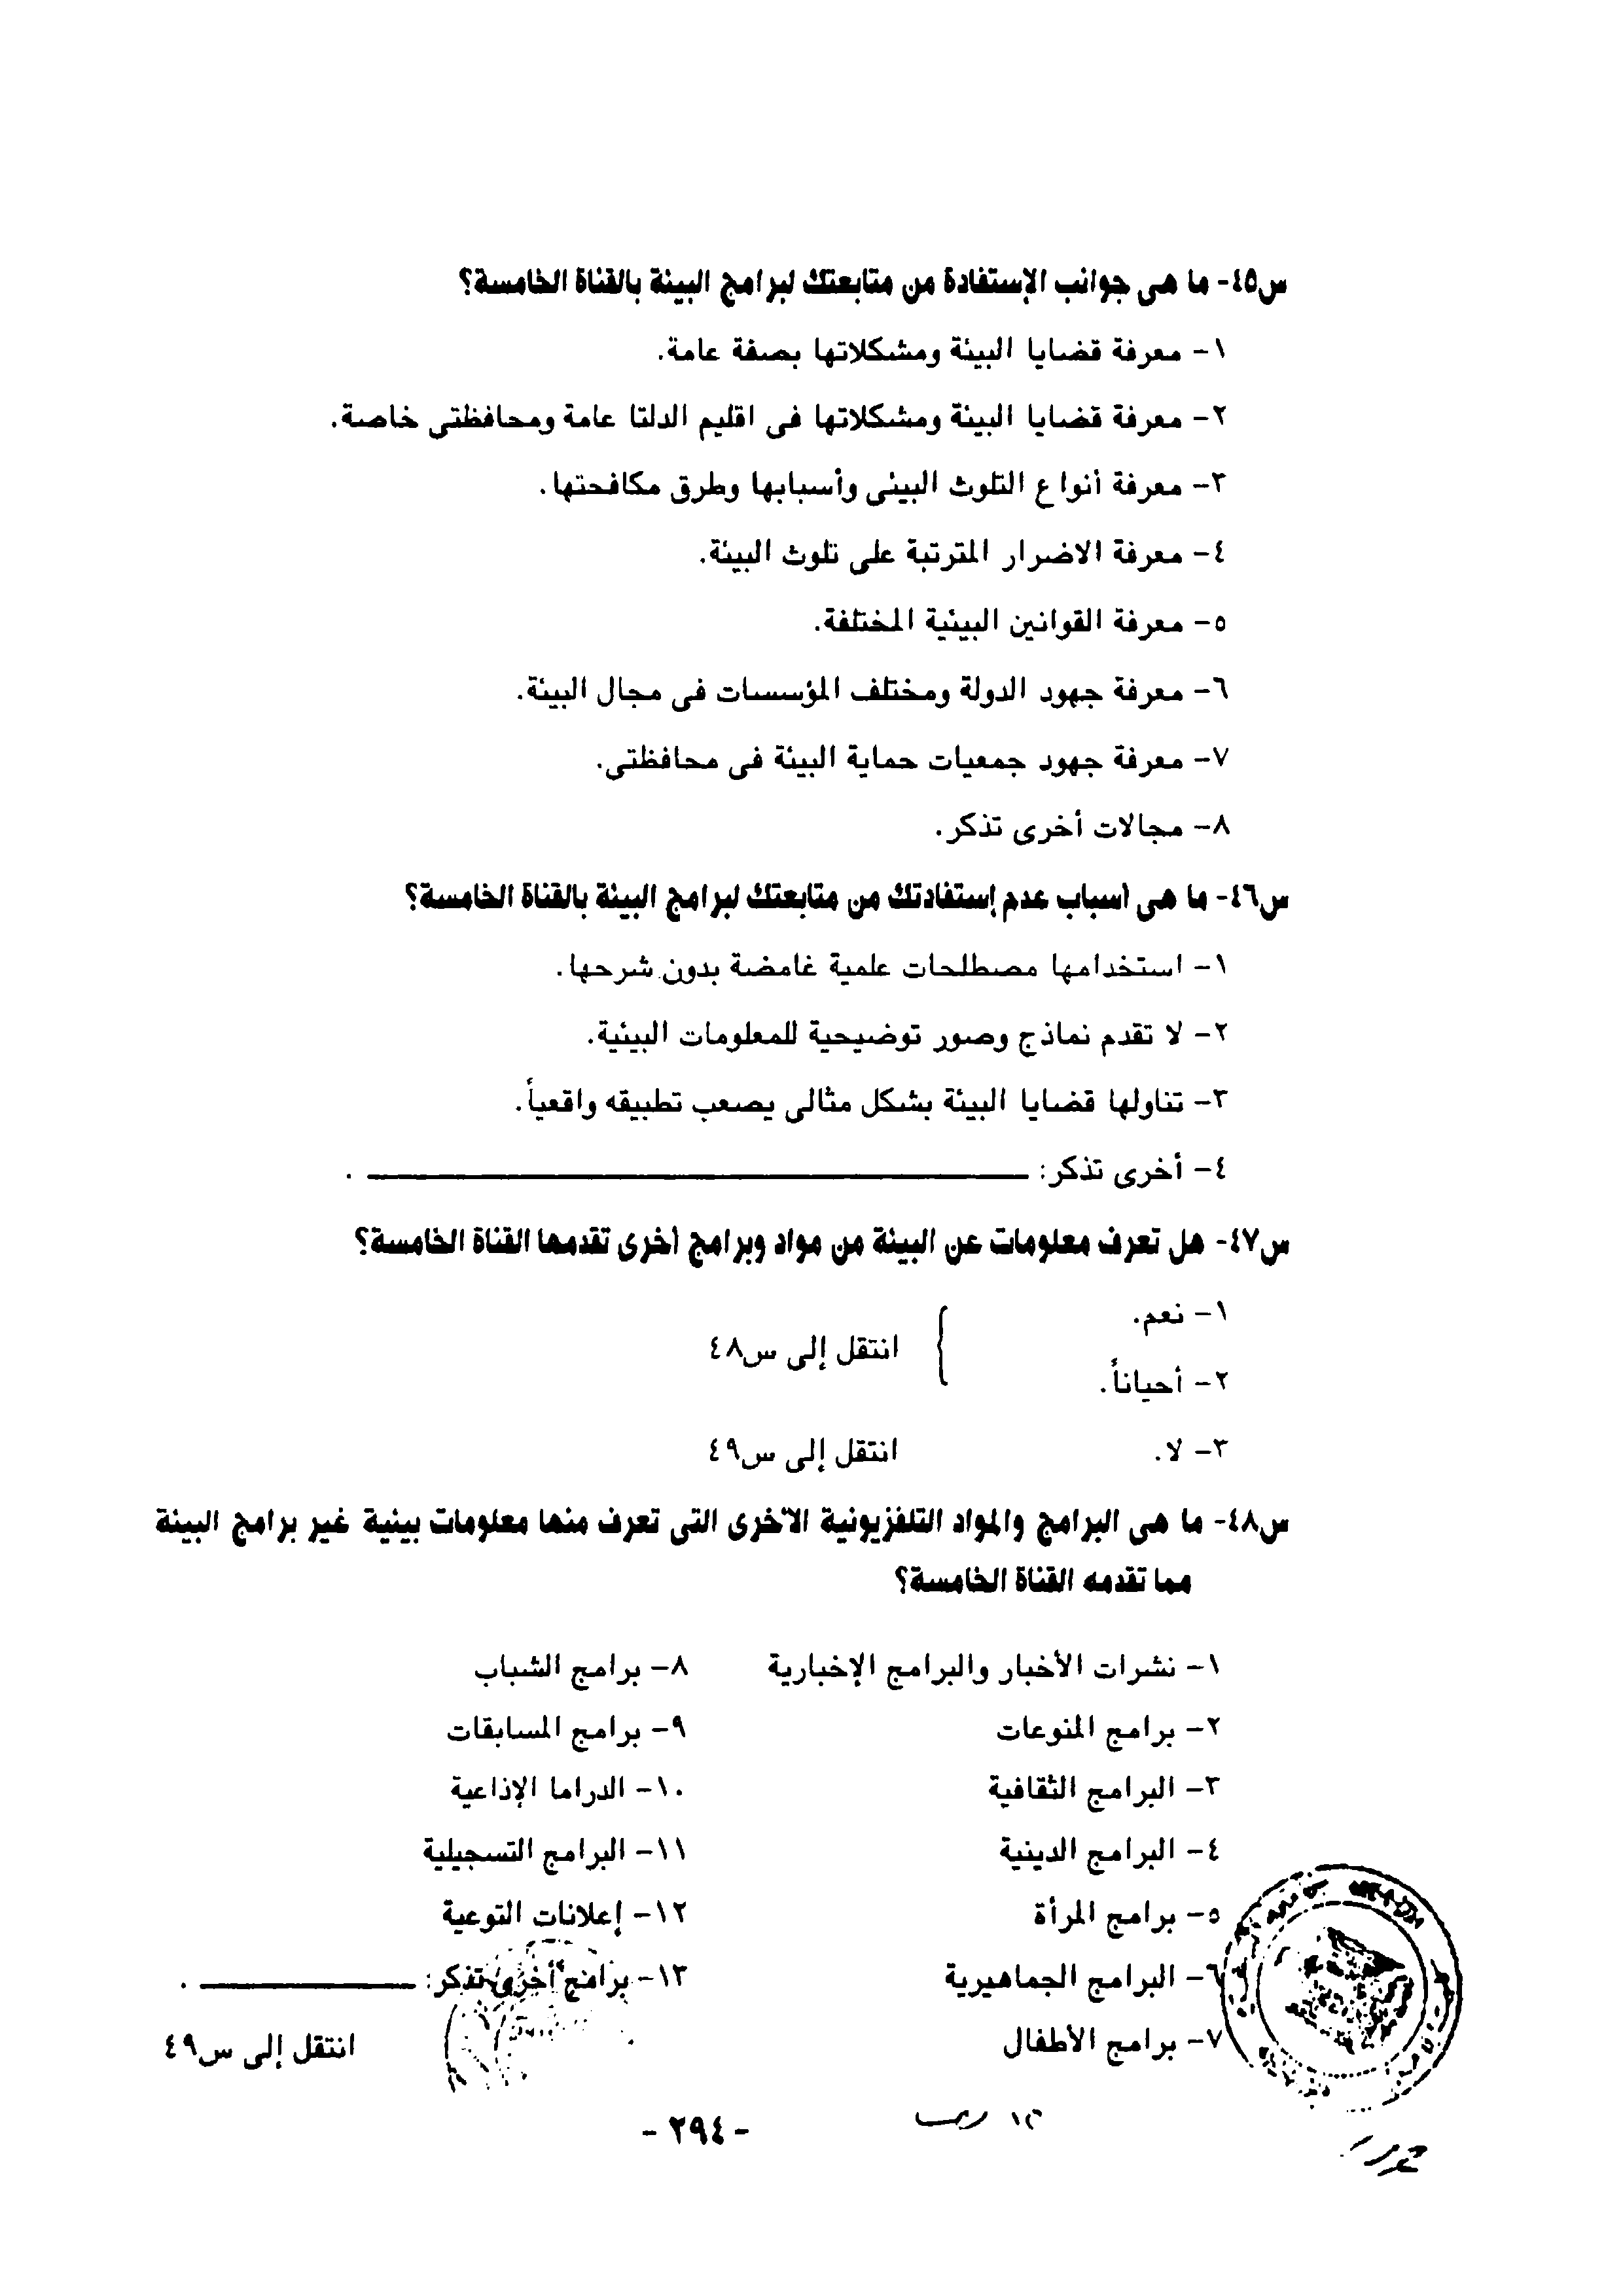 س٤٥- ما هى جوانب الإستفادة من متابعتك لبرامج البيئة بالقناة الخامسة؟
١- معرفة قضايا البيئة ومشكلاتها بصفة عامة.
٢- معرفة قضايا البيئة ومشكلاتها فى اقليم الدلتا عامة ومحافظتى خاصة.
٣- معرفة أنواع التلوث البيئى وأسبابها وطرق مكافحتها.
٤- معرفة الاضرار المترتبة على تلوث البيئة.
٥- معرفة القوانين البيئية المختلفة.
٦- معرفة جهود الدولة ومختلف المؤسسات فى مجال البيئة.
٧- معرفة جهود جمعيات حماية البيئة فى محافظتى.
٨- مجالات أخرى تذكر.
س٤٦- ما هى أسباب عدم إستفادتك من متابعتك لبرامج البيئة بالقناة الخامسة؟
١- استخدامها مصطلحات علمية غامضة بدون شرحها.
٢- لا تقدم نماذج وصور توضيحية للمعلومات البيئية.
٣- تناولها قضايا البيئة بشكل مثالى يصعب تطبيقه واقعياً.
٤- أخرى تذكر: ــــــــــــــــــــ .
س٤٧- هل تعرف معلومات عن البيئة من مواد وبرامج أخرى تقدمها القناة الخامسة؟
١- نعم.
انتقل إلى س٤٨
٢- أحياناً.
٣- لا. انتقل إلى س٤٩
س٤٨- ما هى البرامج والمواد التلفزيونية الأخرى التى تعرف منها معلومات بيئية غير برامج البيئة
مما تقدمه القناة الخامسة؟
١- نشرات الأخبار والبرامج الإخبارية ٨- برامج الشباب
٢- برامج المنوعات ٩- برامج المسابقات
٣- البرامج الثقافية ١٠- الدراما الإذاعية
٤- البرامج الدينية ١١- البرامج التسجيلية
٥- برامج المرأة ١٢- إعلانات التوعية
٦- البرامج الجماهيرية ١٣- برامج أخرى تذكر: ــــــــــــ .
٧- برامج الأطفال انتقل إلى س٤٩
- ٢٩٤ -